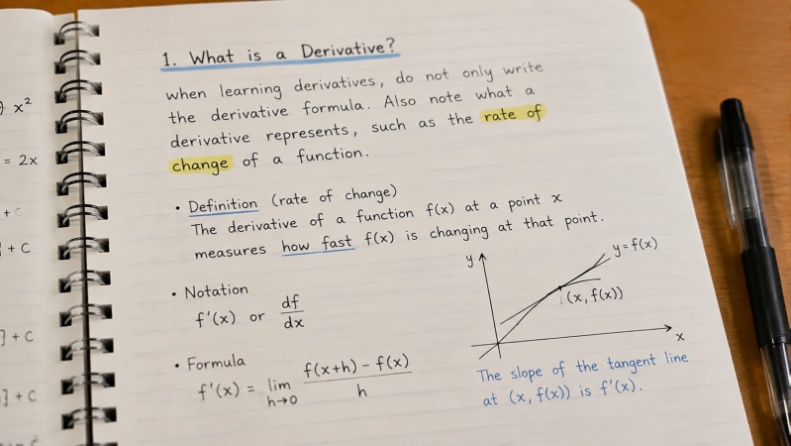 1. What is a Derivative?
when learning derivatives, do not only write
the derivative formula. Also note what a
derivative represents, such as the rate of
change of a function.
• Definition (rate of change)
The derivative of a function f(x) at a point x
measures how fast f(x) is changing at that point.
• Notation
f'(x) or df/dx
• Formula
f'(x) = lim h→0 f(x+h) - f(x) / h
y
y=f(x)
(x, f(x))
x
The slope of the tangent line
at (x, f(x)) is f'(x).
x²
= 2x
+ C
+ C
} + C
} + C